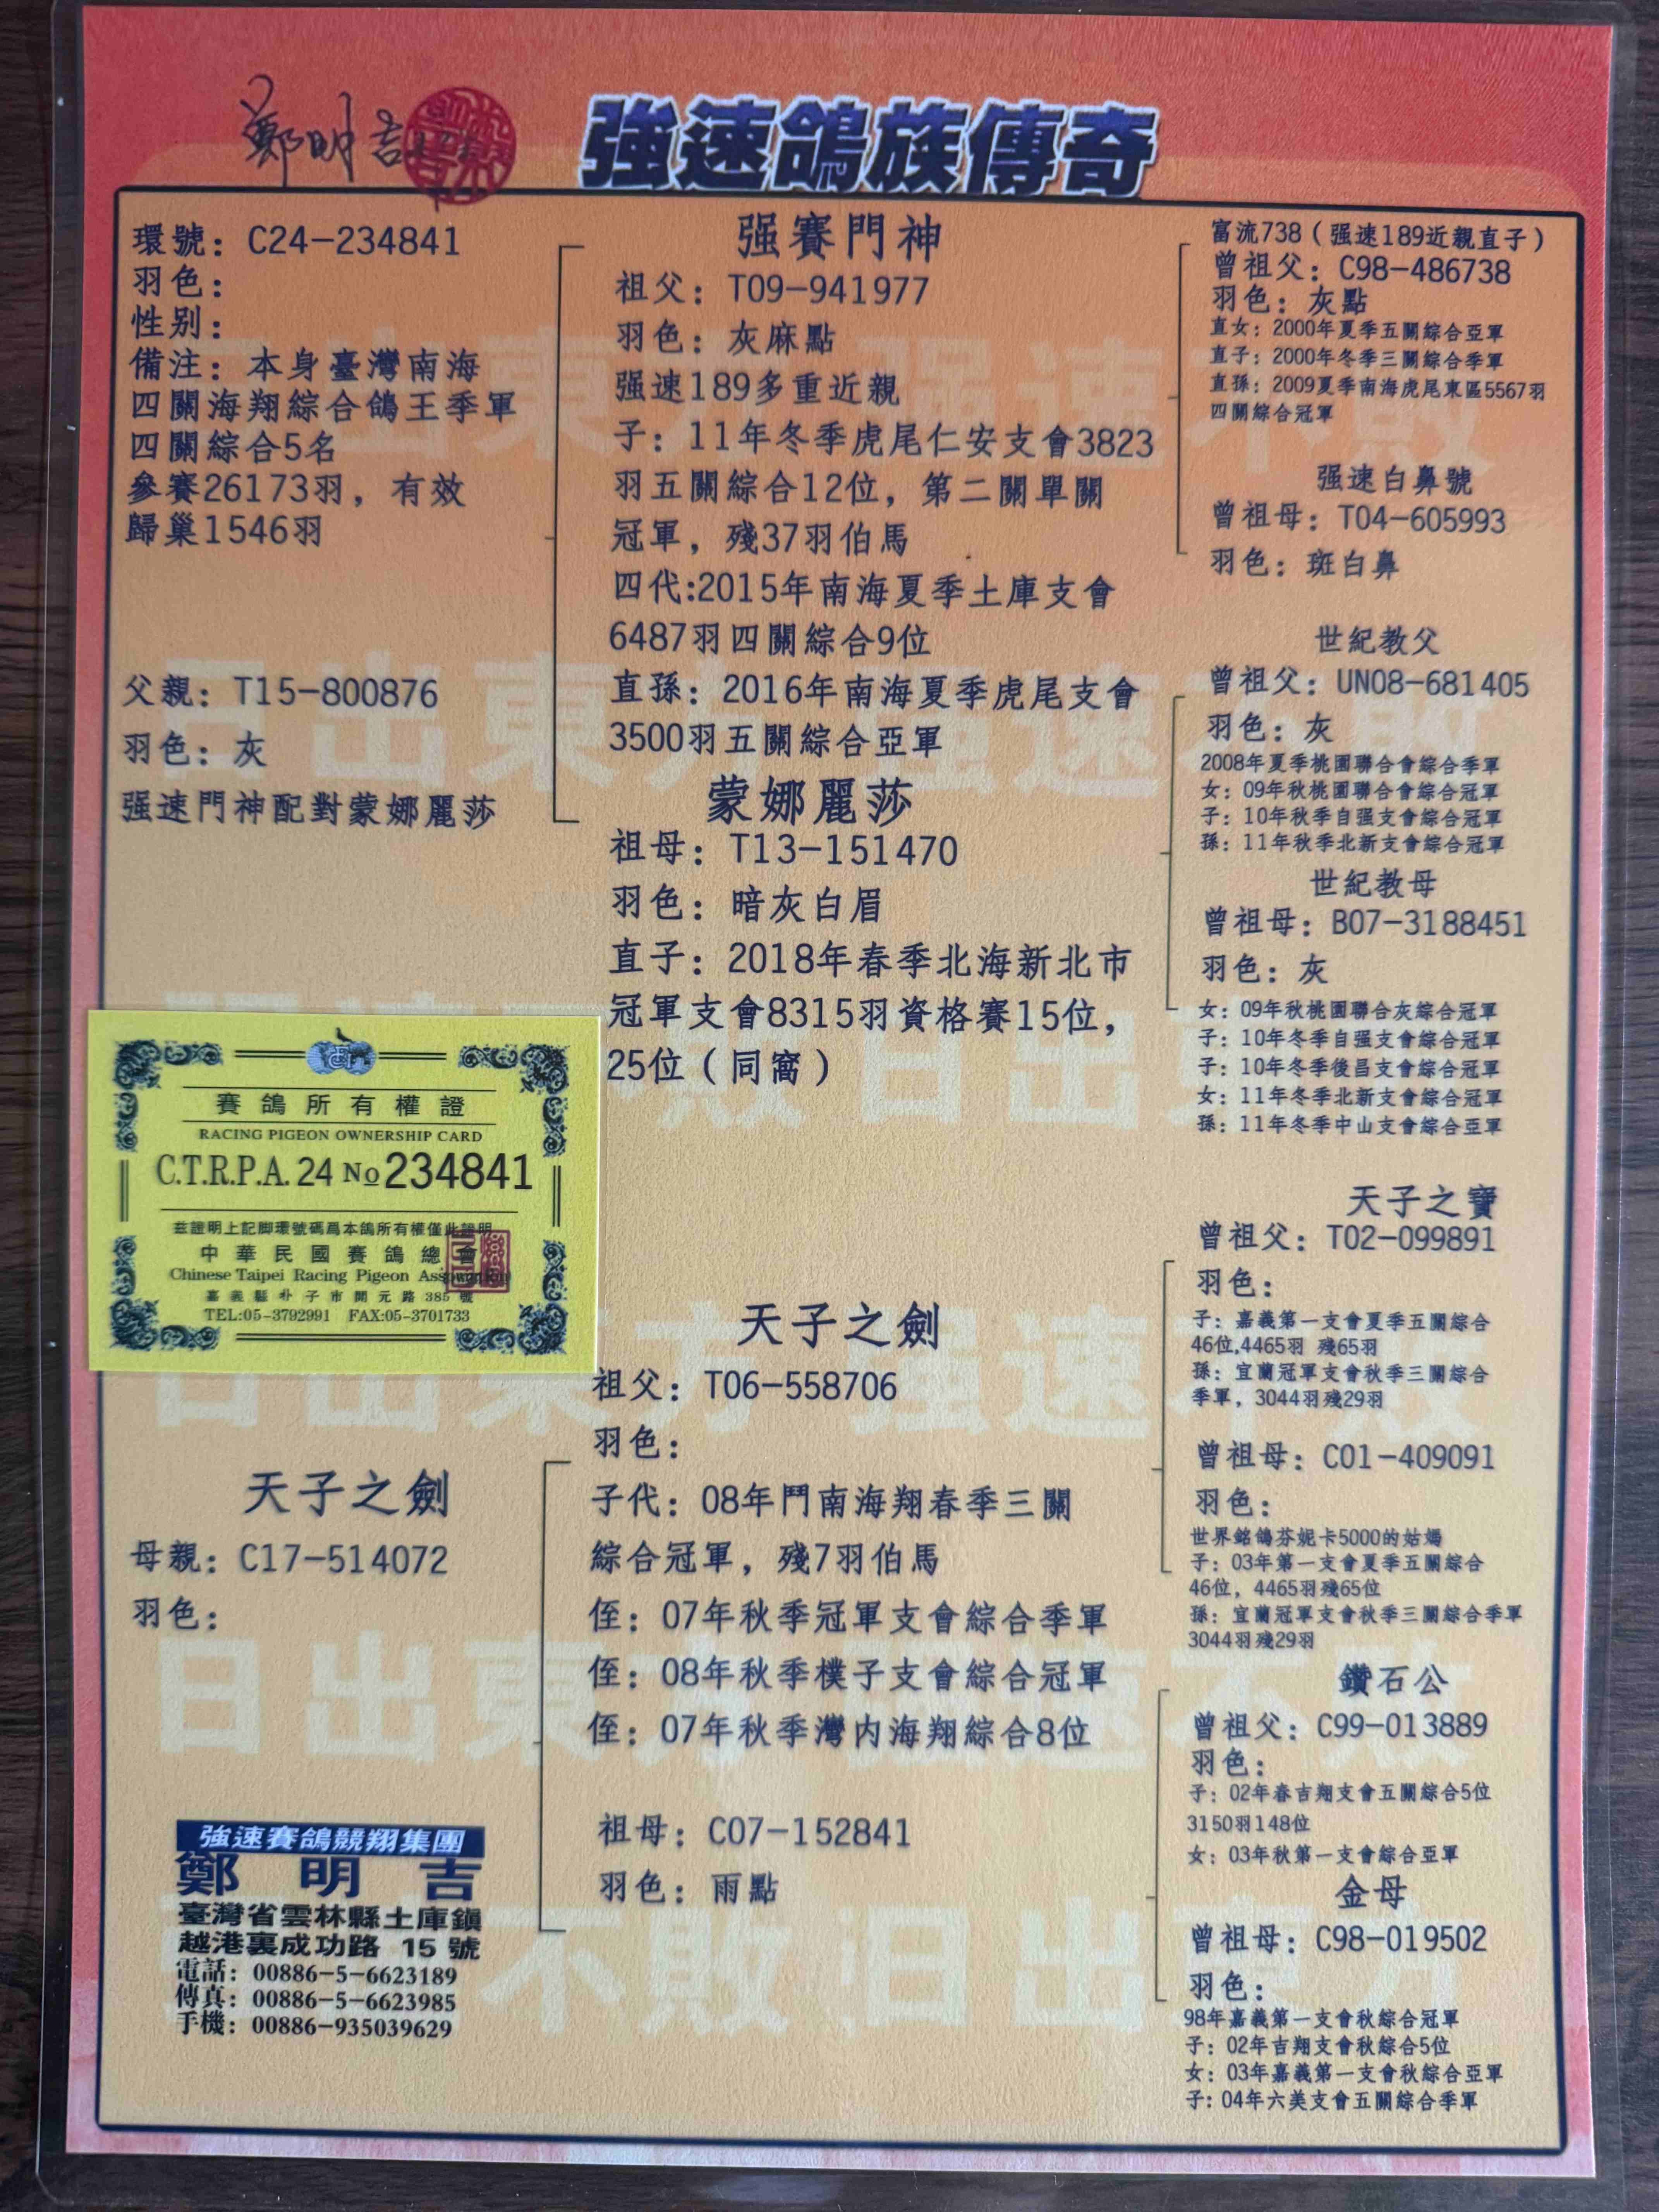 鄭明吉
強速鴿族傳奇
環號：C24-234841
羽色：
性别：
備注：本身臺灣南海
四關海翔綜合鴿王季軍
四關綜合5名
參賽26173羽，有效
歸巢1546羽
父親：T15-800876
羽色：灰
强速門神配對蒙娜麗莎
强賽門神
祖父：T09-941977
羽色：灰麻點
强速189多重近親
子：11年冬季虎尾仁安支會3823
羽五關綜合12位，第二關單關
冠軍，殘37羽伯馬
四代:2015年南海夏季土庫支會
6487羽四關綜合9位
直孫：2016年南海夏季虎尾支會
3500羽五關綜合亞軍
蒙娜麗莎
祖母：T13-151470
羽色：暗灰白眉
直子：2018年春季北海新北市
冠軍支會8315羽資格賽15位，
25位（同窩）
富流738（强速189近親直子）
曾祖父：C98-486738
羽色：灰點
直女：2000年夏季五關綜合亞軍
直子：2000年冬季三關綜合季軍
直孫：2009夏季南海虎尾東區5567羽
四關綜合冠軍
强速白鼻號
曾祖母：T04-605993
羽色：斑白鼻
世紀教父
曾祖父：UN08-681405
羽色：灰
2008年夏季桃園聯合會綜合季軍
女：09年秋桃園聯合會綜合冠軍
子：10年秋季自强支會綜合冠軍
孫：11年秋季北新支會綜合冠軍
世紀教母
曾祖母：B07-3188451
羽色：灰
女：09年秋桃園聯合灰綜合冠軍
子：10年冬季自强支會綜合冠軍
子：10年冬季後昌支會綜合冠軍
女：11年冬季北新支會綜合冠軍
孫：11年冬季中山支會綜合亞軍
賽鴿所有權證
RACING PIGEON OWNERSHIP CARD
C.T.R.P.A. 24 No 234841
茲證明上記脚環號碼爲本鴿所有權僅此證明
中華民國賽鴿總會
Chinese Taipei Racing Pigeon
嘉義縣朴子市開元路385號
TEL:05-3792991 FAX:05-3701733
天子之劍
母親：C17-514072
羽色：
天子之劍
祖父：T06-558706
羽色：
子代：08年鬥南海翔春季三關
綜合冠軍，殘7羽伯馬
侄：07年秋季冠軍支會綜合季軍
侄：08年秋季樸子支會綜合冠軍
侄：07年秋季灣内海翔綜合8位
祖母：C07-152841
羽色：雨點
天子之寶
曾祖父：T02-099891
羽色：
子：嘉義第一支會夏季五關綜合
46位,4465羽 殘65羽
孫：宜蘭冠軍支會秋季三關綜合
季軍，3044羽殘29羽
曾祖母：C01-409091
羽色：
世界銘鴿芬妮卡5000的姑媽
子：03年第一支會夏季五關綜合
46位，4465羽殘65位
孫：宜蘭冠軍支會秋季三關綜合季軍
3044羽殘29羽
鑽石公
曾祖父：C99-013889
羽色：
子：02年春吉翔支會五關綜合5位
3150羽148位
女：03年秋第一支會綜合亞軍
金母
曾祖母：C98-019502
羽色：
98年嘉義第一支會秋綜合冠軍
子：02年吉翔支會秋綜合5位
女：03年嘉義第一支會秋綜合亞軍
子：04年六美支會五關綜合季軍
強速賽鴿競翔集團
鄭明吉
臺灣省雲林縣土庫鎮
越港裏成功路 15 號
電話：00886-5-6623189
傳真：00886-5-6623985
手機：00886-935039629